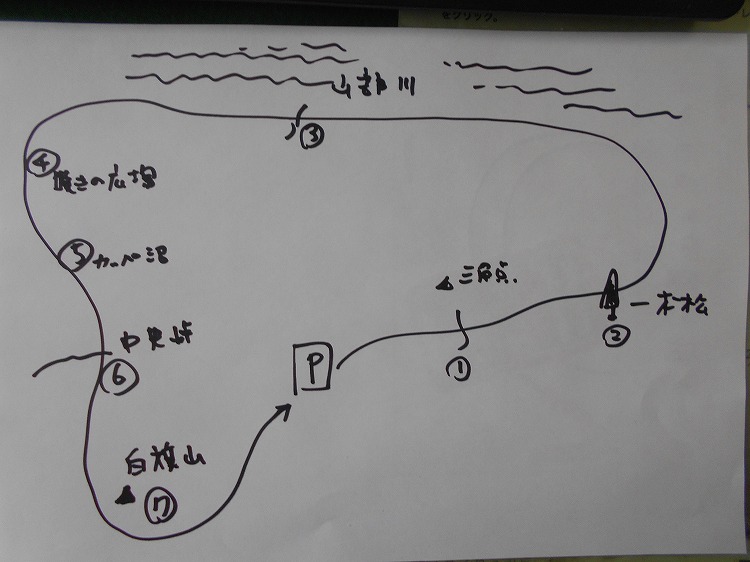 をクリック。
山部川
③
④
嘆きの広場
⑤
カッパ沼
三角点.
一本松
②
中央峠
P
①
⑥
白旗山
⑦